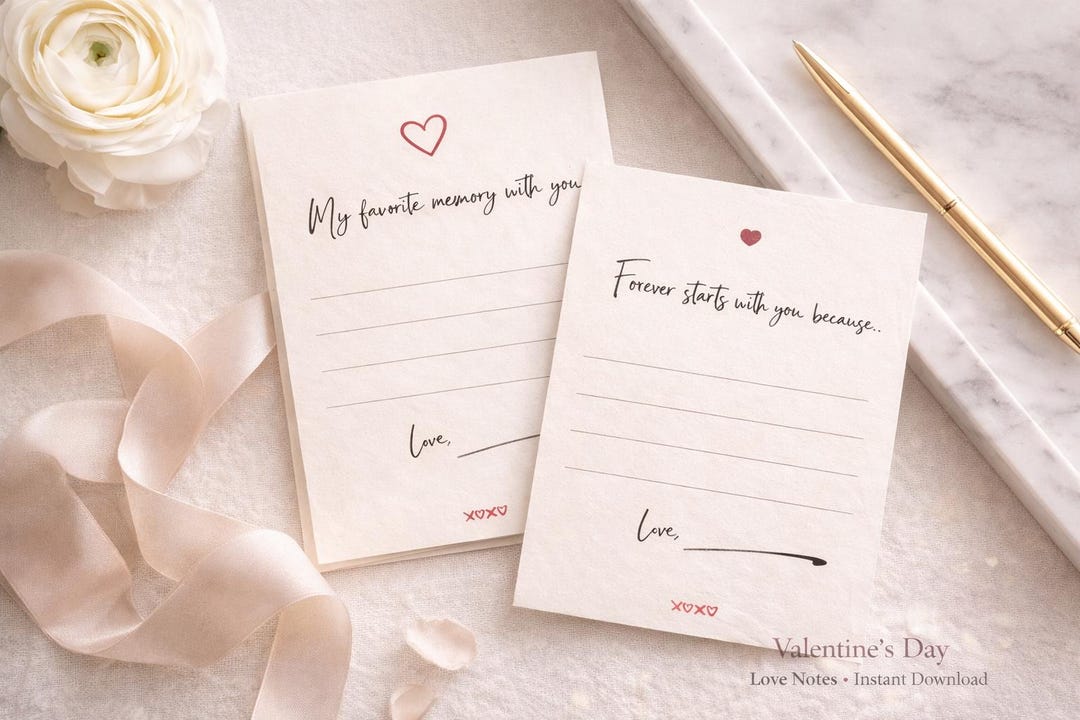 My favorite memory with you
Love,
xoxo
Forever starts with you because..
Love,
xoxo
Valentine's Day
Love Notes • Instant Download